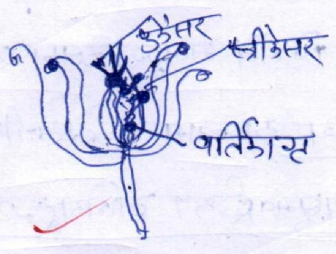 पुंकेसर
स्त्रीकेसर
वर्तिकाग्र